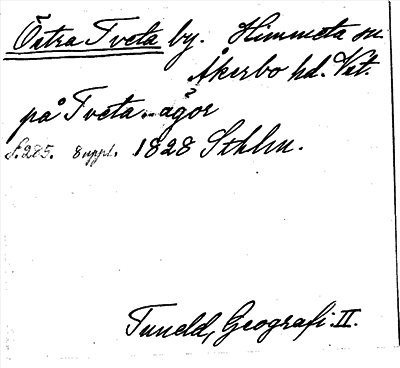 Östra Tveta by. Himmeta sn.
Åkerbo hd. Vst.
på Tveta-ägor
S. 285. 8 uppl. 1828 Sthlm.
Tuneld, Geografi. II.